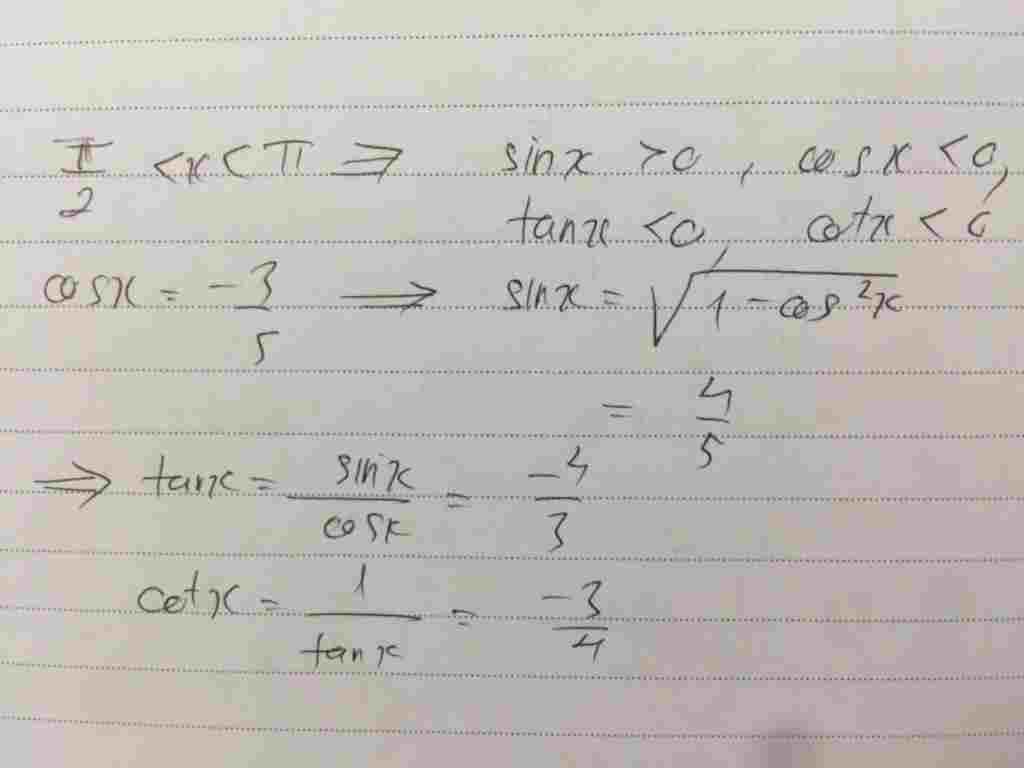 π/2 < x < π ⇒ sinx > 0, cosx < 0,
tanx < 0, cotx < 0
cosx = -3/5 ⟹ sinx = √(1 - cos²x)
= 4/5
⟹ tanx = sinx/cosx = -4/3
cotx = 1/tanx = -3/4